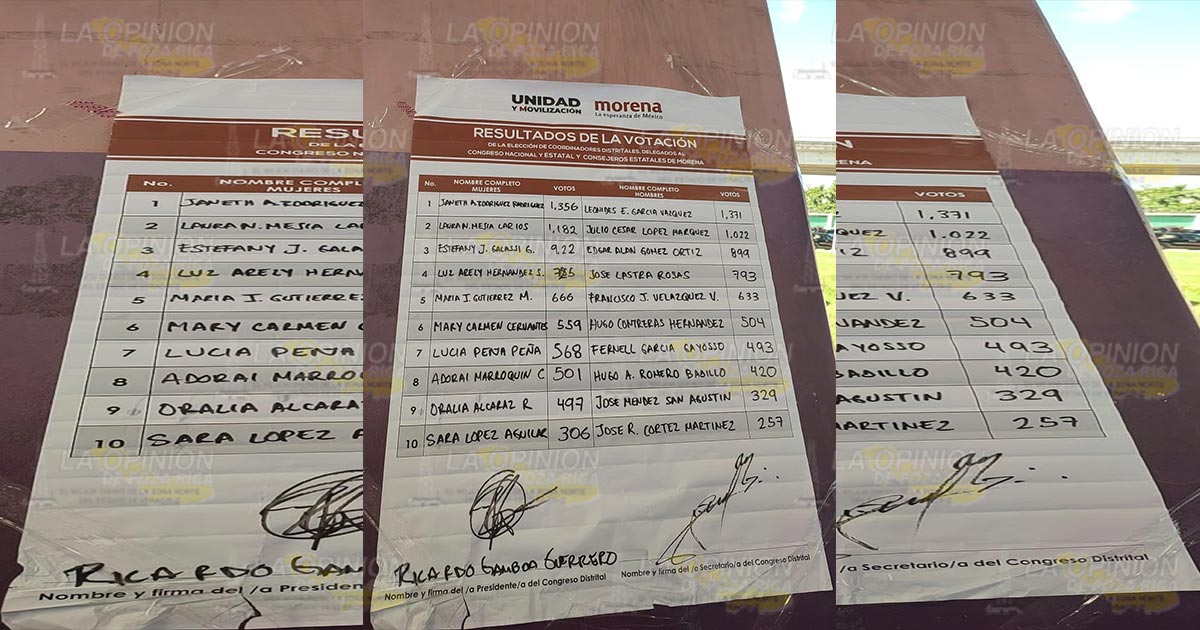 UNIDAD
Y MOVILIZACIÓN
morena
La esperanza de México
RESULTADOS DE LA VOTACIÓN
DE LA ELECCIÓN DE COORDINADORES DISTRITALES, DELEGADOS AL
CONGRESO NACIONAL Y ESTATAL Y CONSEJEROS ESTATALES DE MORENA
No. NOMBRE COMPLETO MUJERES VOTOS NOMBRE COMPLETO HOMBRES VOTOS
1 JANETH A. RODRIGUEZ RODRIGUEZ 1,356 LEONIDES E. GARCIA VAZQUEZ 1,371
2 LAURA N. MESIA LARIOS 1,182 JULIO CESAR LOPEZ MARQUEZ 1.022
3 ESTEFANY J. GALASSI G. 9,22 EDGAR ALAN GOMEZ ORTIZ 899
4 LUZ ARELY HERNANDEZ S. JOSE LASTRA ROSAS 793
5 MARIA I. GUTIERREZ M. 666 FRANCISCO J. VELAZQUEZ V. 633
6 MARY CARMEN CERVANTES 559 HUGO CONTRERAS HERNANDEZ 504
7 LUCIA PENA PEÑA 568 FERNELL GARCIA GAYOSSO 493
8 ADORAI MARROQUIN C 501 HUGO A. ROMERO BADILLO 420
9 ORALIA ALCARAZ R 497 JOSE MENDEZ SAN AGUSTIN 329
10 SARA LOPEZ AGUILAR 306 JOSE R. CORTEZ MARTINEZ 257
RICARDO GAMBOA GUERRERO
Nombre y firma del /a Presidente/a del Congreso Distrital
Nombre y firma del /a Secretario/a del Congreso Distrital
LA OPINION
DE POZA RICA
EL MEJOR DIARIO DE LA ZONA NORTE
DEL ESTADO DE VERACRUZ